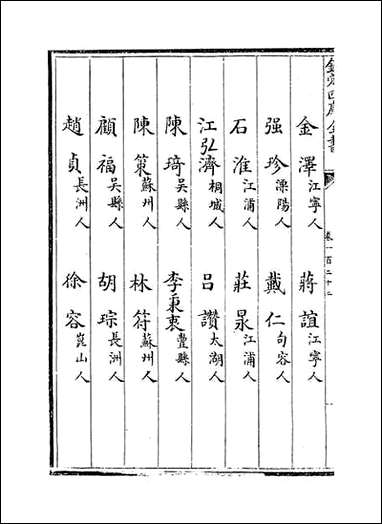 欽定四庫全書
卷一百二十二
金澤江寧人 蔣誼江寧人
强珍溧陽人 戴仁句容人
石淮江浦人 莊㫤江浦人
江弘濟桐城人 吕讚太湖人
陳琦吳縣人 李秉衷豐縣人
陳策蘇州人 林符蘇州人
顧福吳縣人 胡琮長洲人
趙貞長洲人 徐容崑山人